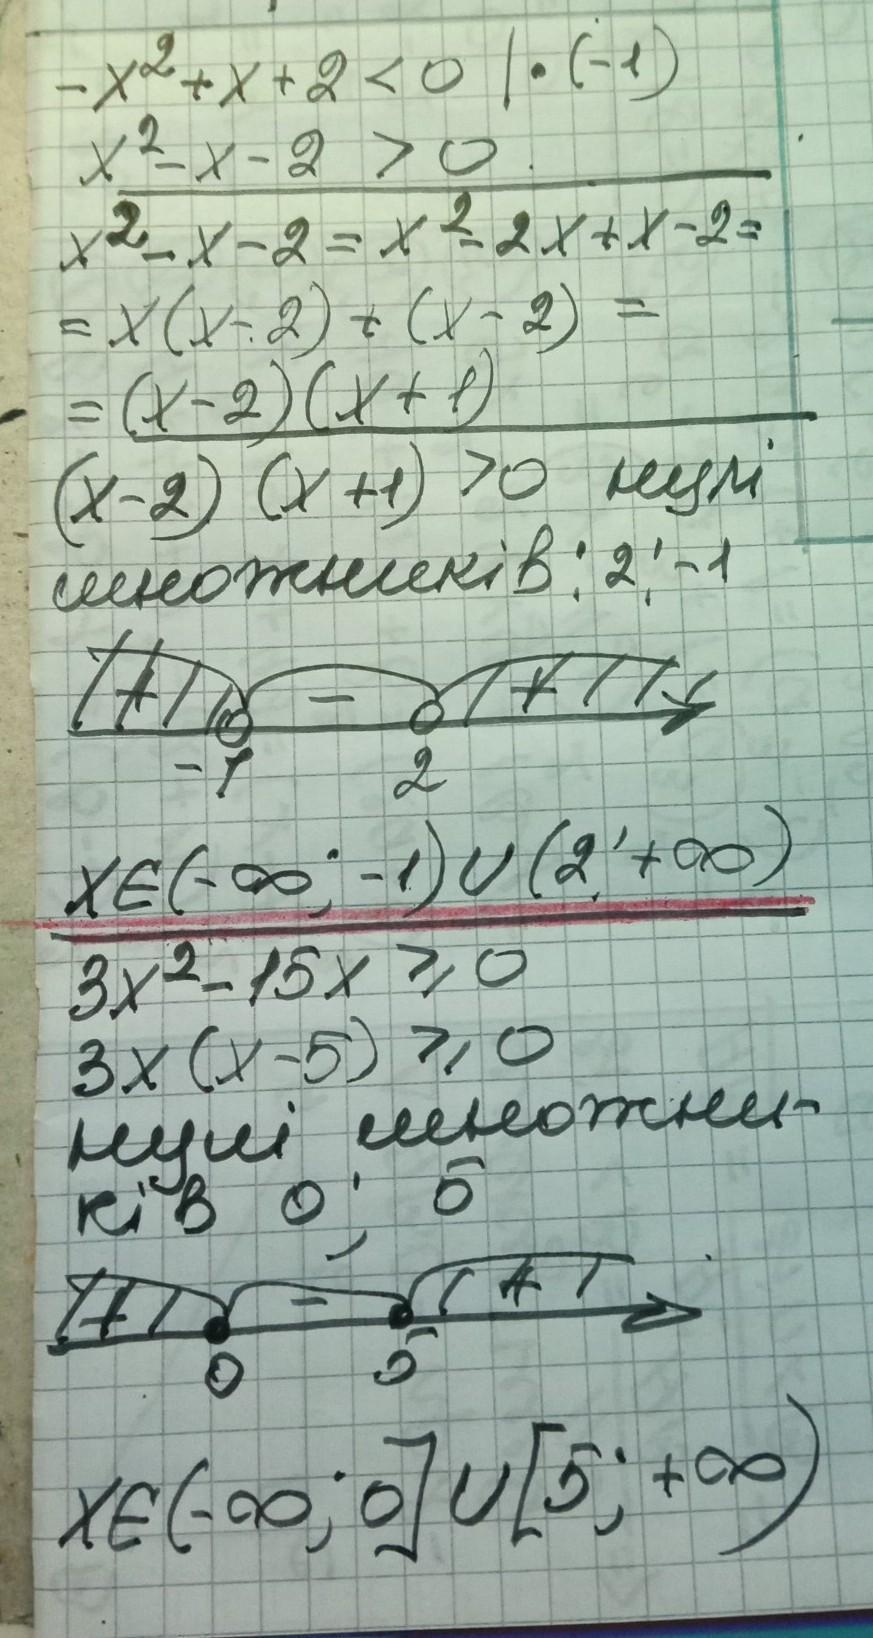 -x²+x+2<0 |·(-1)
x²-x-2 >0
x²-x-2=x²-2x+x-2=
=x(x-2)+(x-2)=
=(x-2)(x+1)
(x-2)(x+1)>0 нулі
множників: 2; -1
+ - + x
-1 2
x∈(-∞; -1)∪(2; +∞)
3x²-15x⩾0
3x(x-5)⩾0
нулі множни-
ків 0; 5
+ - +
0 5
x∈(-∞; 0]∪[5; +∞)